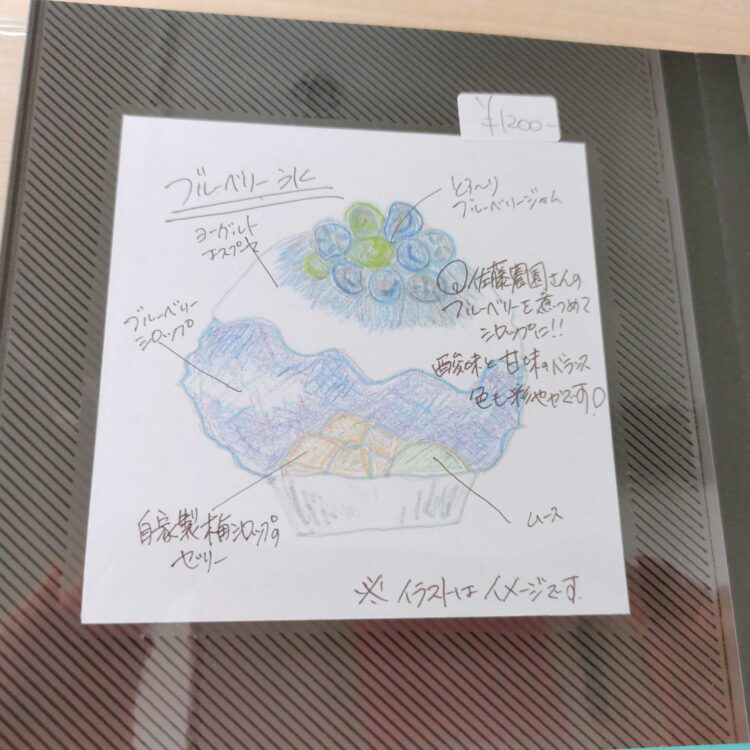 ¥1200-
ブルーベリー氷
とろ〜り
ブルーベリージャム
ヨーグルト
エスプーマ
佐藤農園さんの
ブルーベリーを煮つめて
シロップに!!
酸味と甘味のバランス
色も彩やかです。
ブルーベリー
シロップ
自家製梅シロップの
ゼリー
ムース
※イラストはイメージです